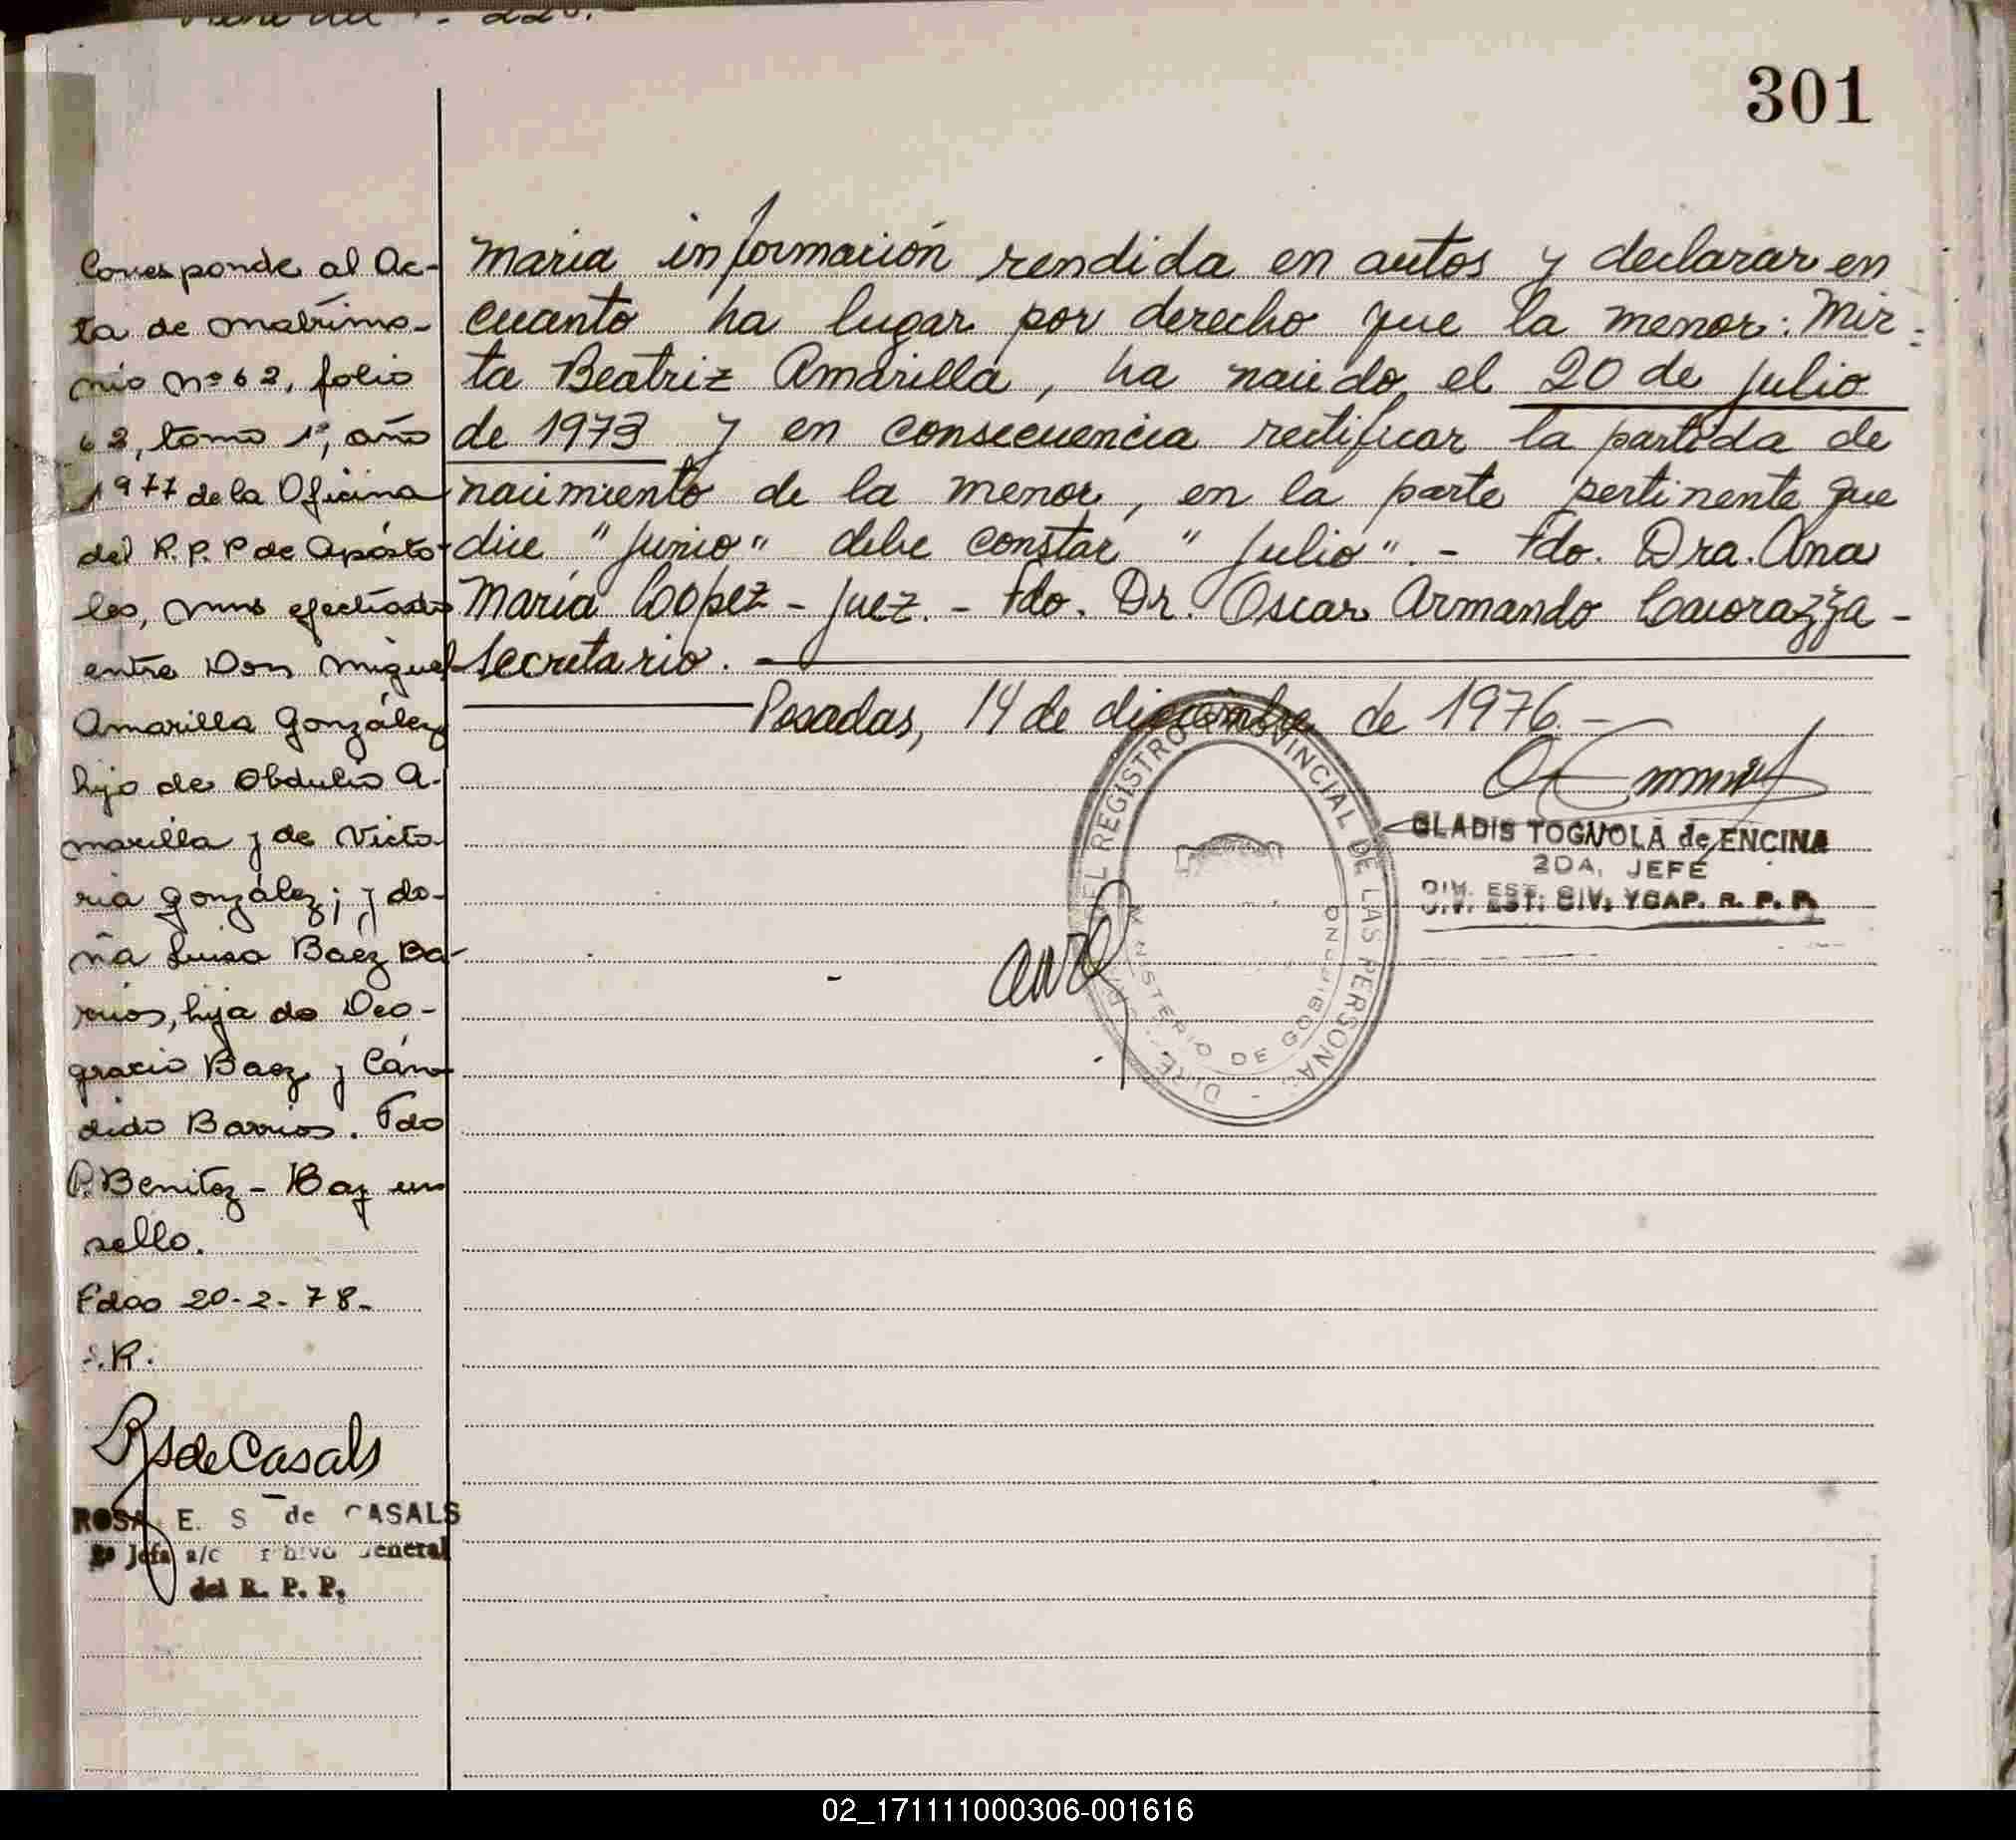 301
Corresponde al Ac-
ta de matrimo-
nio Nº 62, folio
62, tomo 1º, año
1977 de la Oficina
del R.P.P de Aposto-
les, Mns efectuado
entre Don Miguel
Amarilla González
hijo de Obdulio A-
marilla y de Victo-
ria González; y do-
ña Luisa Baez Ba-
rrios, hija de Deo-
gracio Baez y Cán-
dida Barrios. Fdo
P. Benitez - Hay un
sello.
Pdas 20-2-78-
R.
RSdeCasals
ROSA E. S de CASALS
2º Jefa a/c Archivo General
del R. P. P.
maria información rendida en autos y declarar en
cuanto ha lugar por derecho que la menor: Mir-
ta Beatriz Amarilla, ha nacido el 20 de julio
de 1973 y en consecuencia rectificar la partida de
nacimiento de la menor, en la parte pertinente que
dice "junio" debe constar "julio".- Fdo. Dra. Ana
María Coopez - Juez. - Fdo. Dr. Oscar Armando Cavorazza -
Secretario. -
Posadas, 14 de diciembre de 1976.-
GLADIS TOGNOLA de ENCINA
2DA. JEFE
DIV. EST. CIV. YCAP. R. P. P.
DEL REGISTRO PROVINCIAL DE LAS PERSONAS
MINISTERIO DE GOBIERNO
02_171111000306-001616